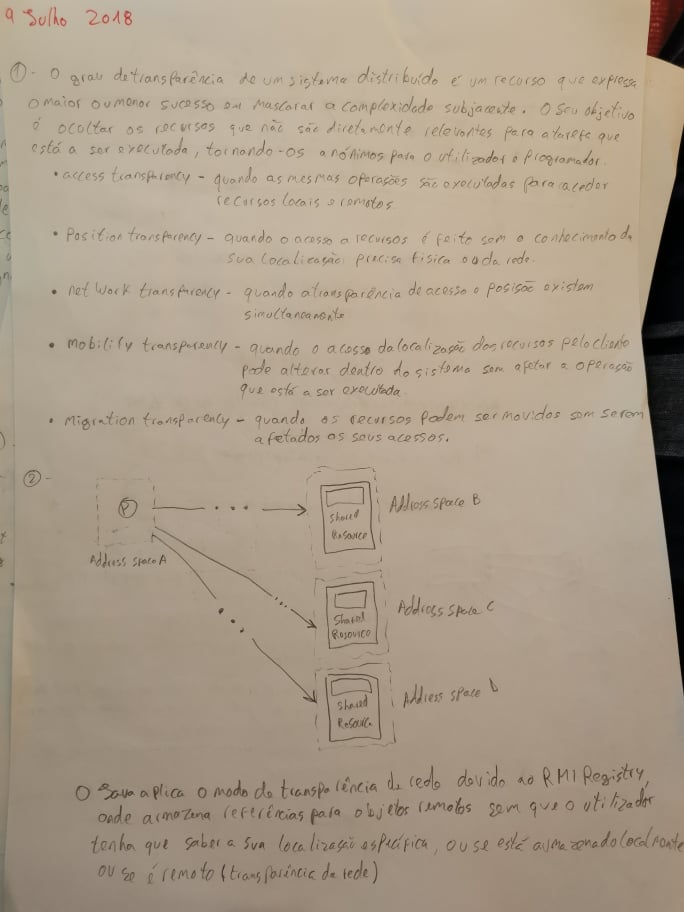 9 Julho 2018
①- O grau de transparência de um sistema distribuído é um recurso que expressa
o maior ou menor sucesso em mascarar a complexidade subjacente. O seu objetivo
é ocultar os recursos que não são diretamente relevantes para a tarefa que
está a ser executada, tornando-os anónimos para o utilizador e programador.
• access transparency - quando as mesmas operações são executadas para aceder
recursos locais e remotos
• Position transparency - quando o acesso a recursos é feito sem o conhecimento da
sua localização precisa física ou da rede.
• network transparency - quando a transparência de acesso e posição existem
simultaneamente
• Mobility transparency - quando o acesso da localização dos recursos pelo cliente
pode alterar dentro do sistema sem afetar a operação
que está a ser executada.
• Migration transparency - quando os recursos podem ser movidos sem serem
afetados os seus acessos.
②-
P
Address space A
Shared
Resource
Address space B
Shared
Resource
Address space C
Shared
Resource
Address space D
O Java aplica o modo de transparência de rede devido ao RMI Registry,
onde armazena referências para objetos remotos sem que o utilizador
tenha que saber a sua localização específica, ou se está armazenado localmente
ou se é remoto (transparência da rede)